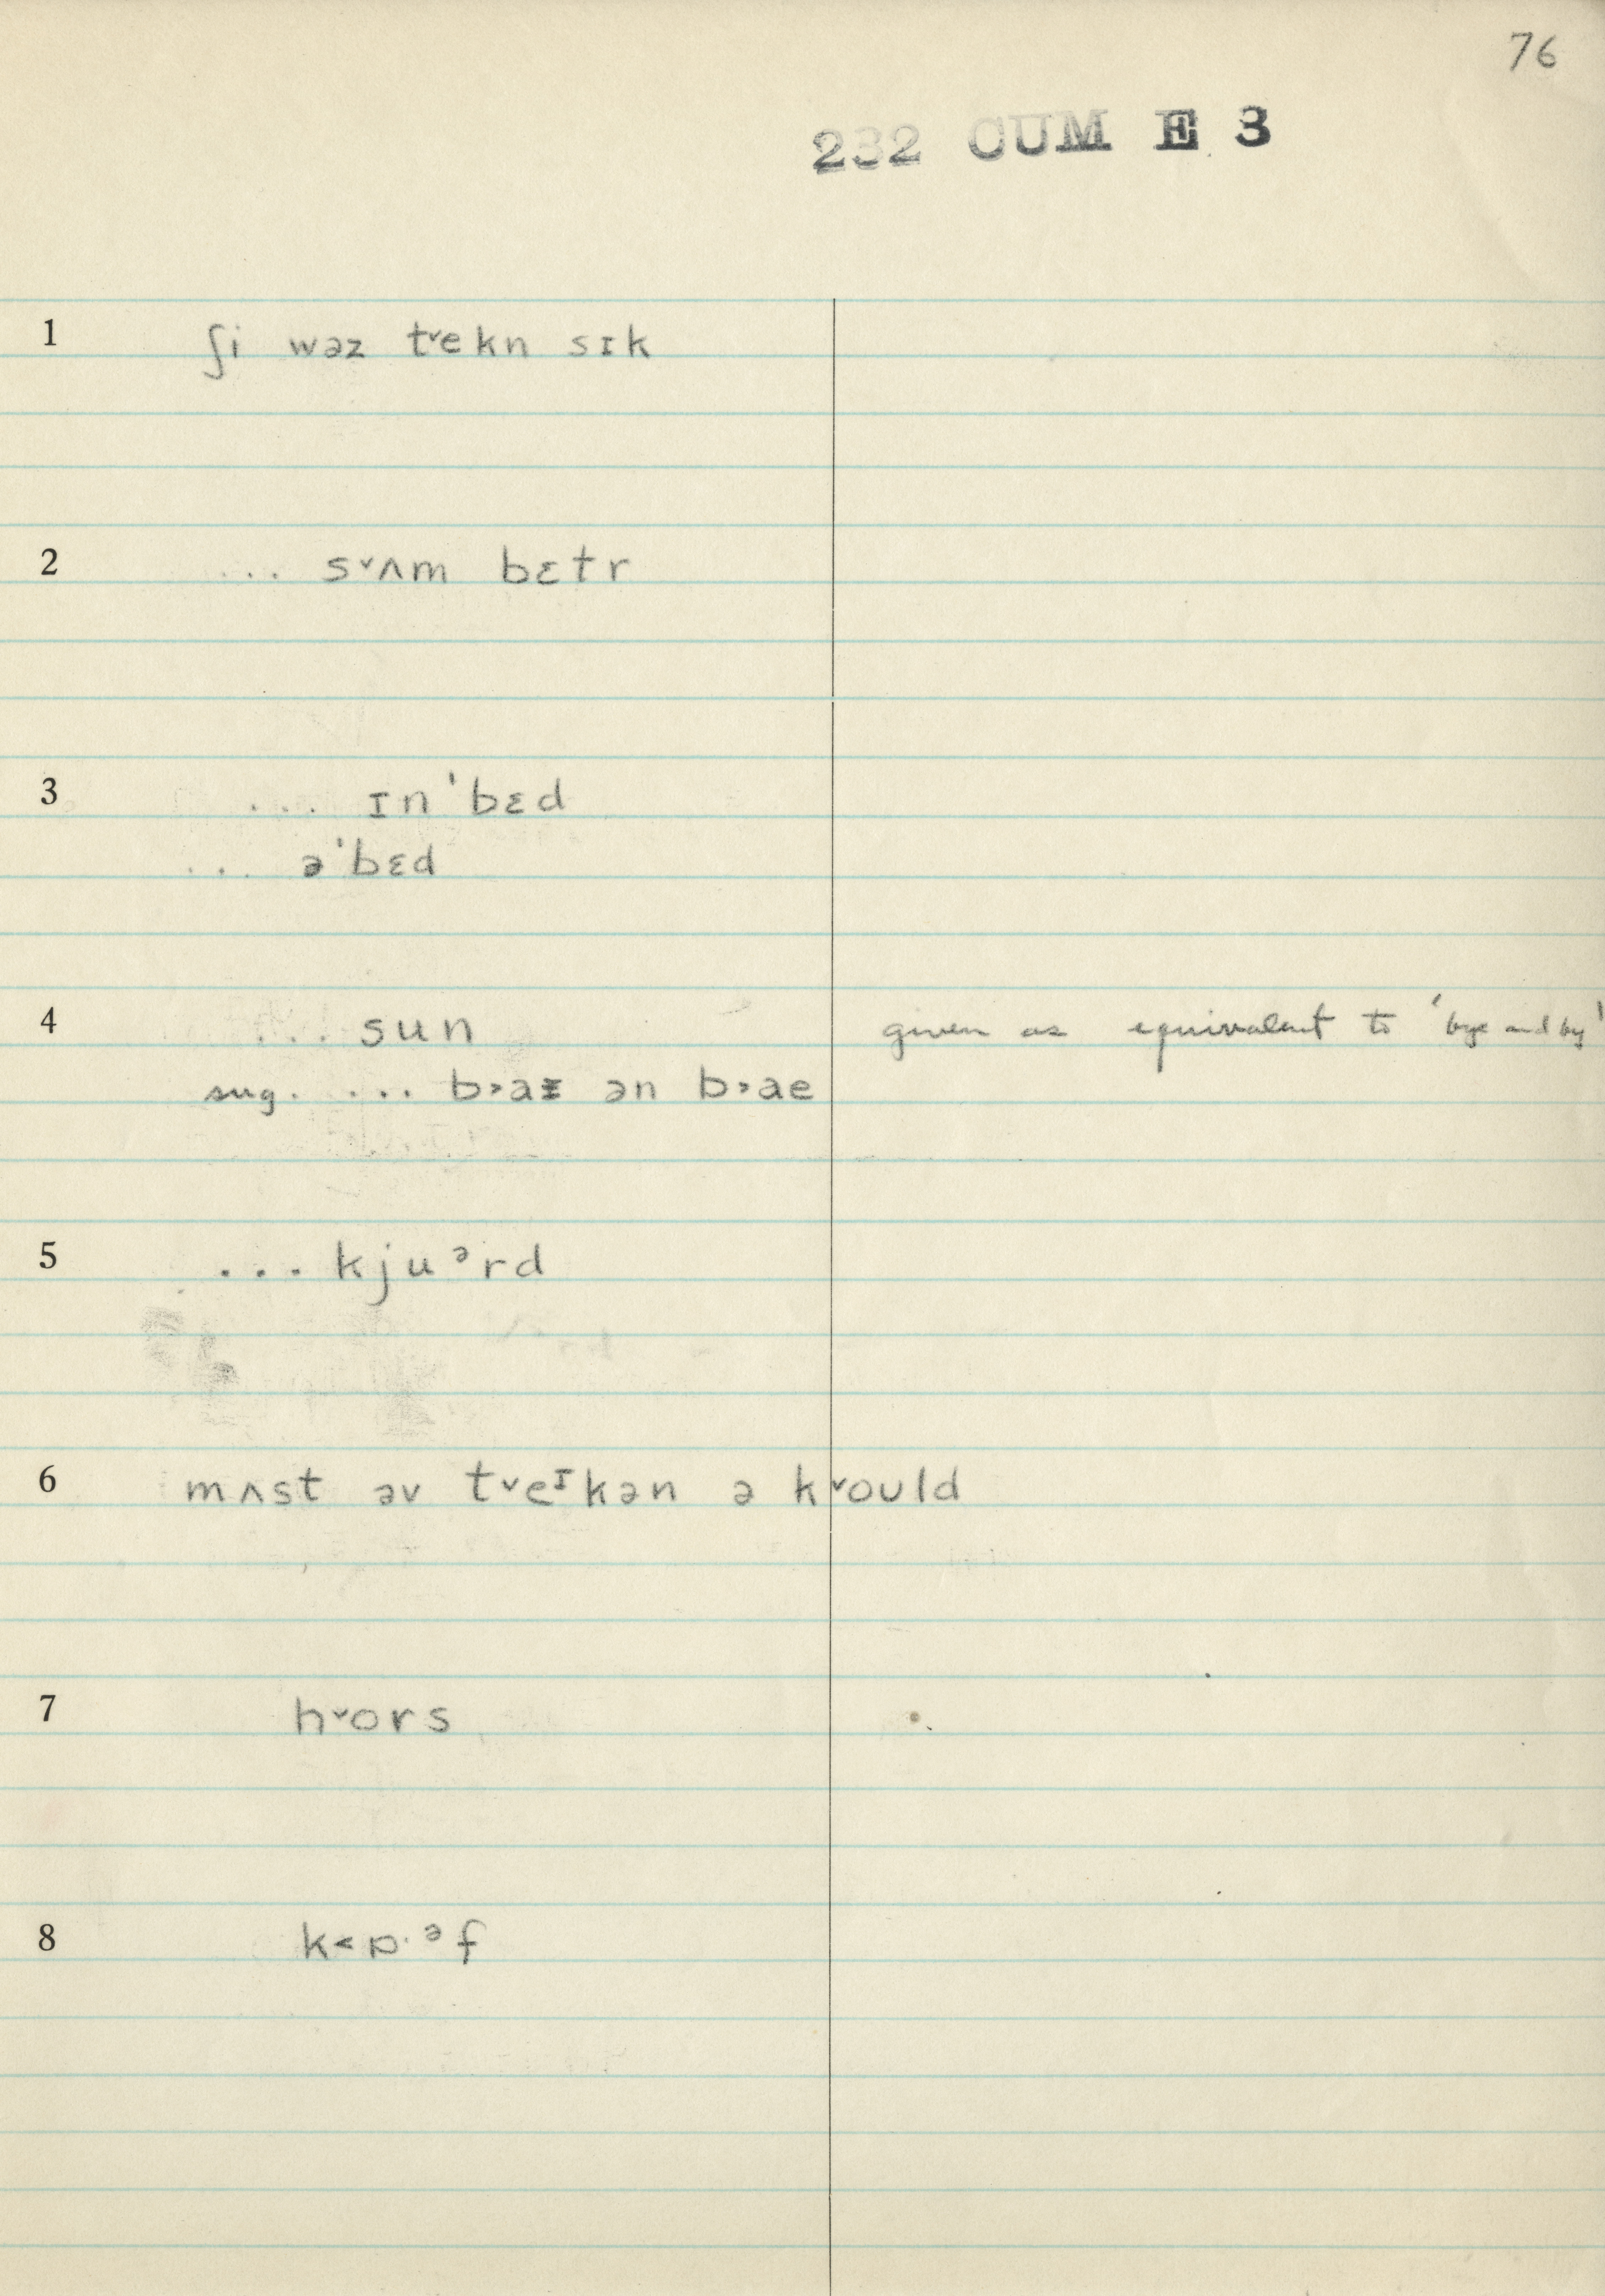 76
232 CUM E 3
1 ʃi wəz t˅ekn sɪk
2 ... s˅ʌm bɛtr
3 ... ɪn ˈbɛd
... ə ˈbɛd
4 ... sun given as equivalent to 'bye and by'
sug. ... b˃aɪ ən b˃ae
5 ... kjuᵊrd
6 mʌst əv t˅eᶦkən ə k˅ould
7 h˅ors
8 k˂ɒ·ᵊf